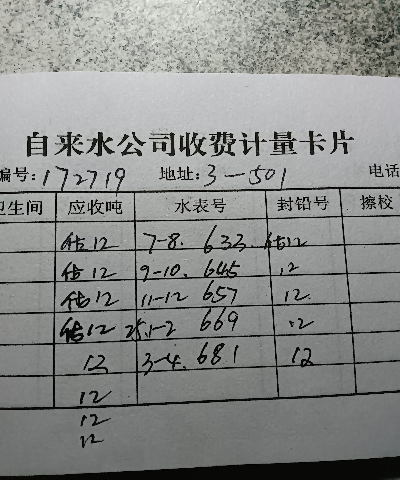 自来水公司收费计量卡片
编号:172719 地址:3-501 电话
卫生间 应收吨 水表号 封铅号 擦校
估12 7-8. 633 估12
估12 9-10. 645 12
估12 11-12 657 12.
估12 25.1-2 669 12
12 3-4. 681 12
12
12
12